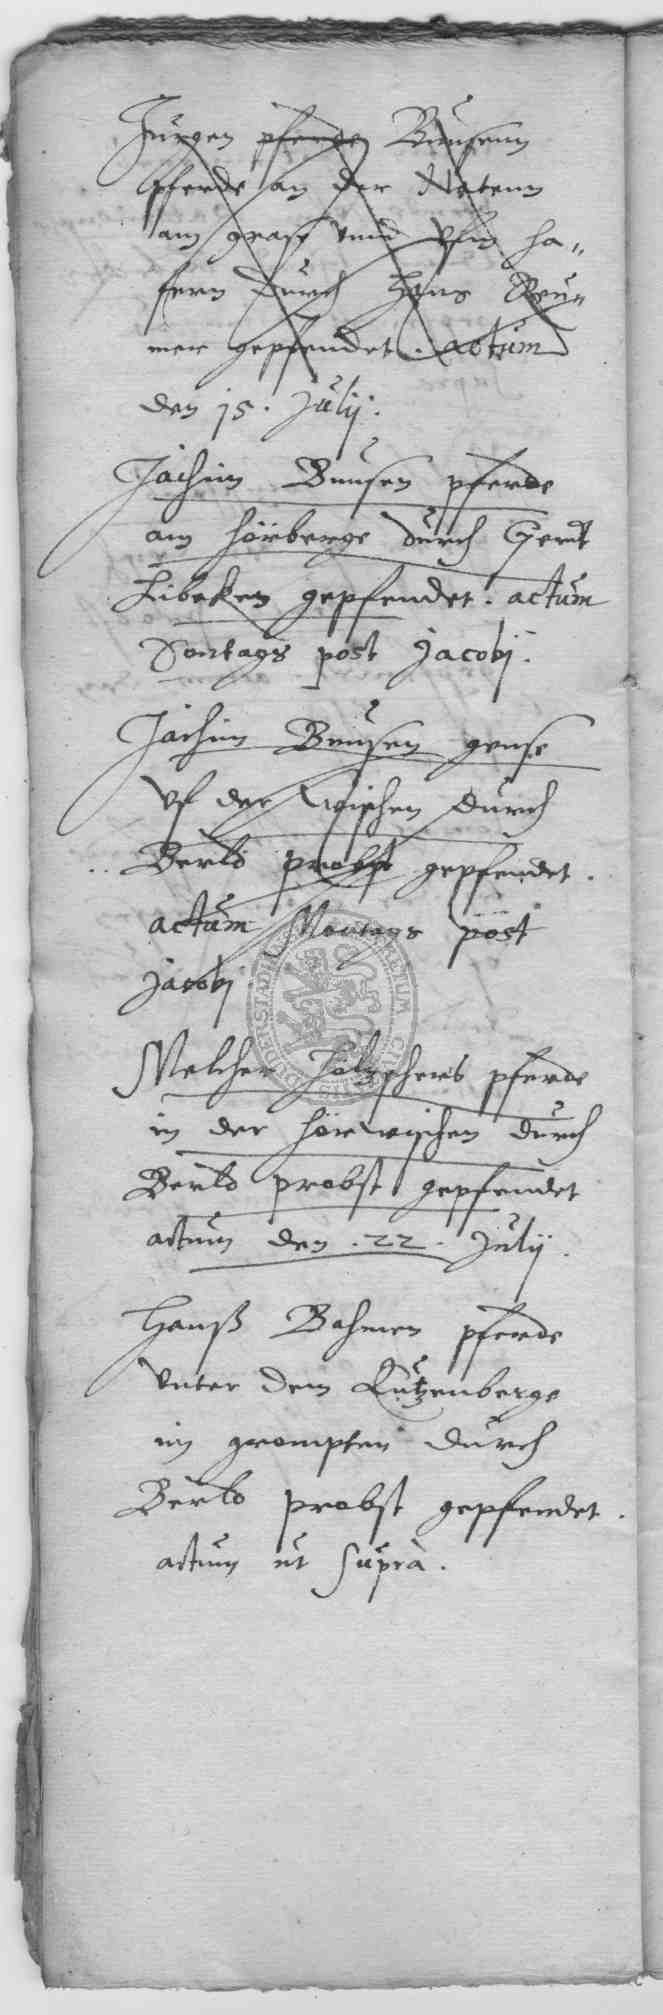 Jurgen pferde Bunsenn
pferde an der Natenn
am grase vnnd vfm ha„
fern durch Hans Breu„
mer gepfendet. actum
den 15. Julij.
Jachim Bunsen pferde
am Hörberge durch Gerdt
Libeken gepfendet. actum
Sontags post Jacobj.
Jachim Bunsen gense
vf der wischen durch
Berld probst gepfendet.
actum Montags post
Jacobj
Melcher Holtzscherbs pferde
in der Hörwischen durch
Berld probst gepfendet
actum den .22. Julij.
Hanß Bahmen pferde
vnter dem Lützenberge
im grompten durch
Berld probst gepfendet.
actum ut suprà.
STADTARCHIV DUDERSTADT